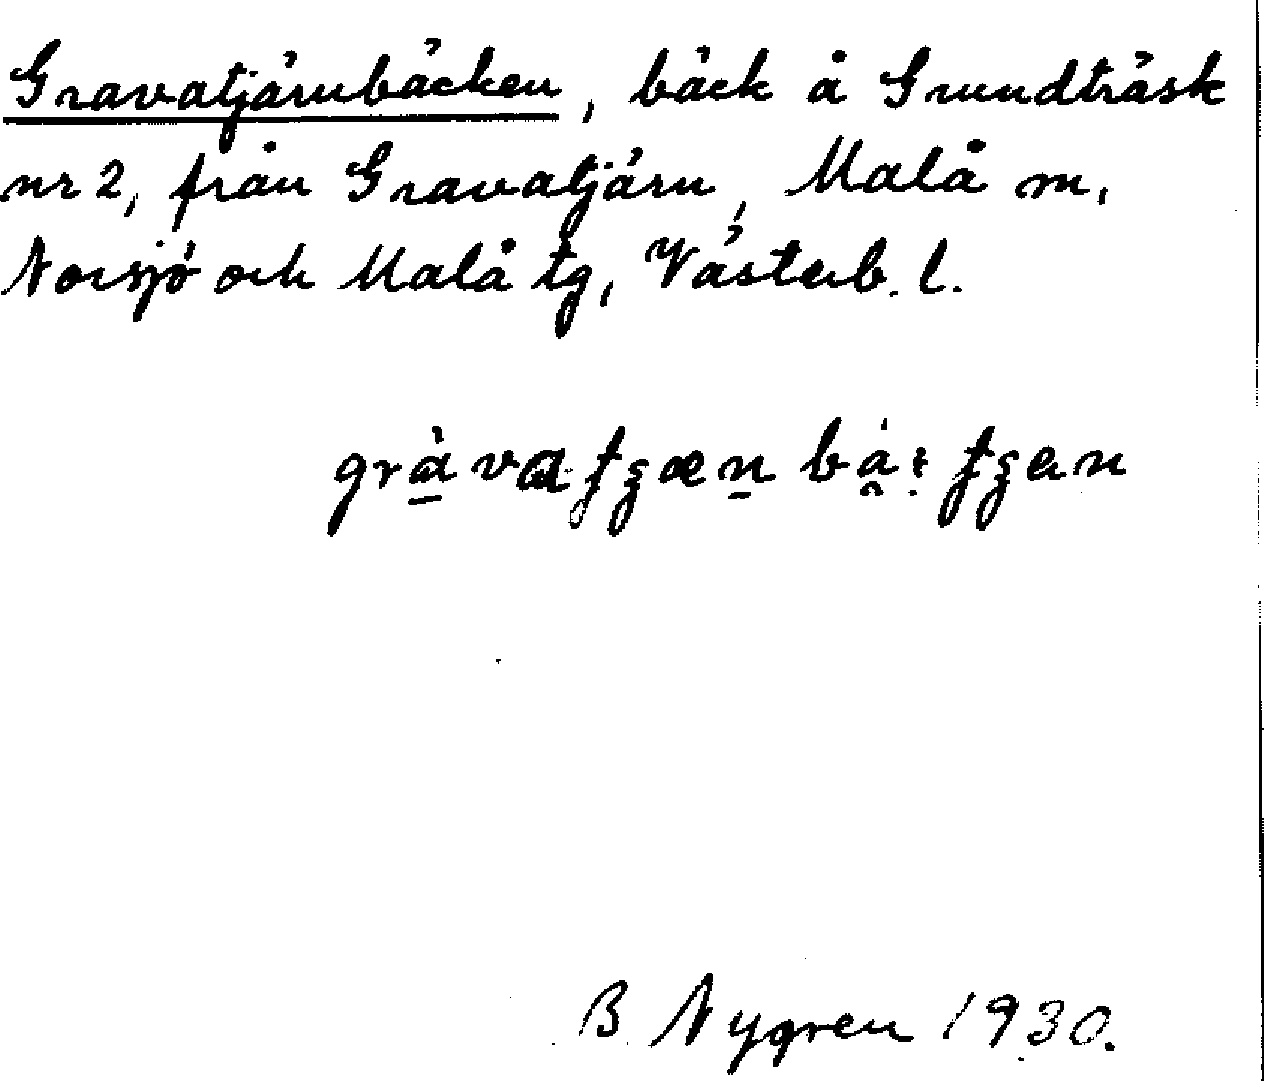 Gravatjärnbäcken, bäck å Grundträsk
nr 2, från Gravatjärn, Malå m,
Norsjö och Malå tg, Västerb. l.
B Nygren 1930.